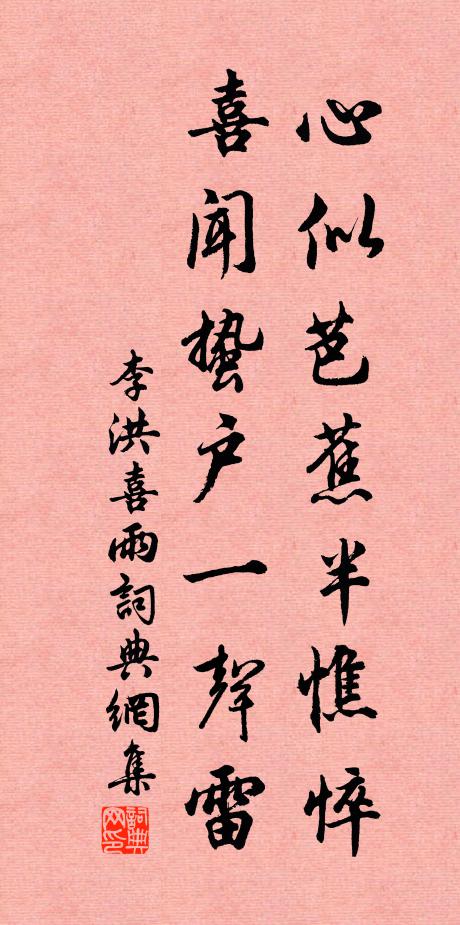 心似芭蕉半憔悴
喜聞蟄户一聲雷
李洪喜雨詞典網集
詞典网印